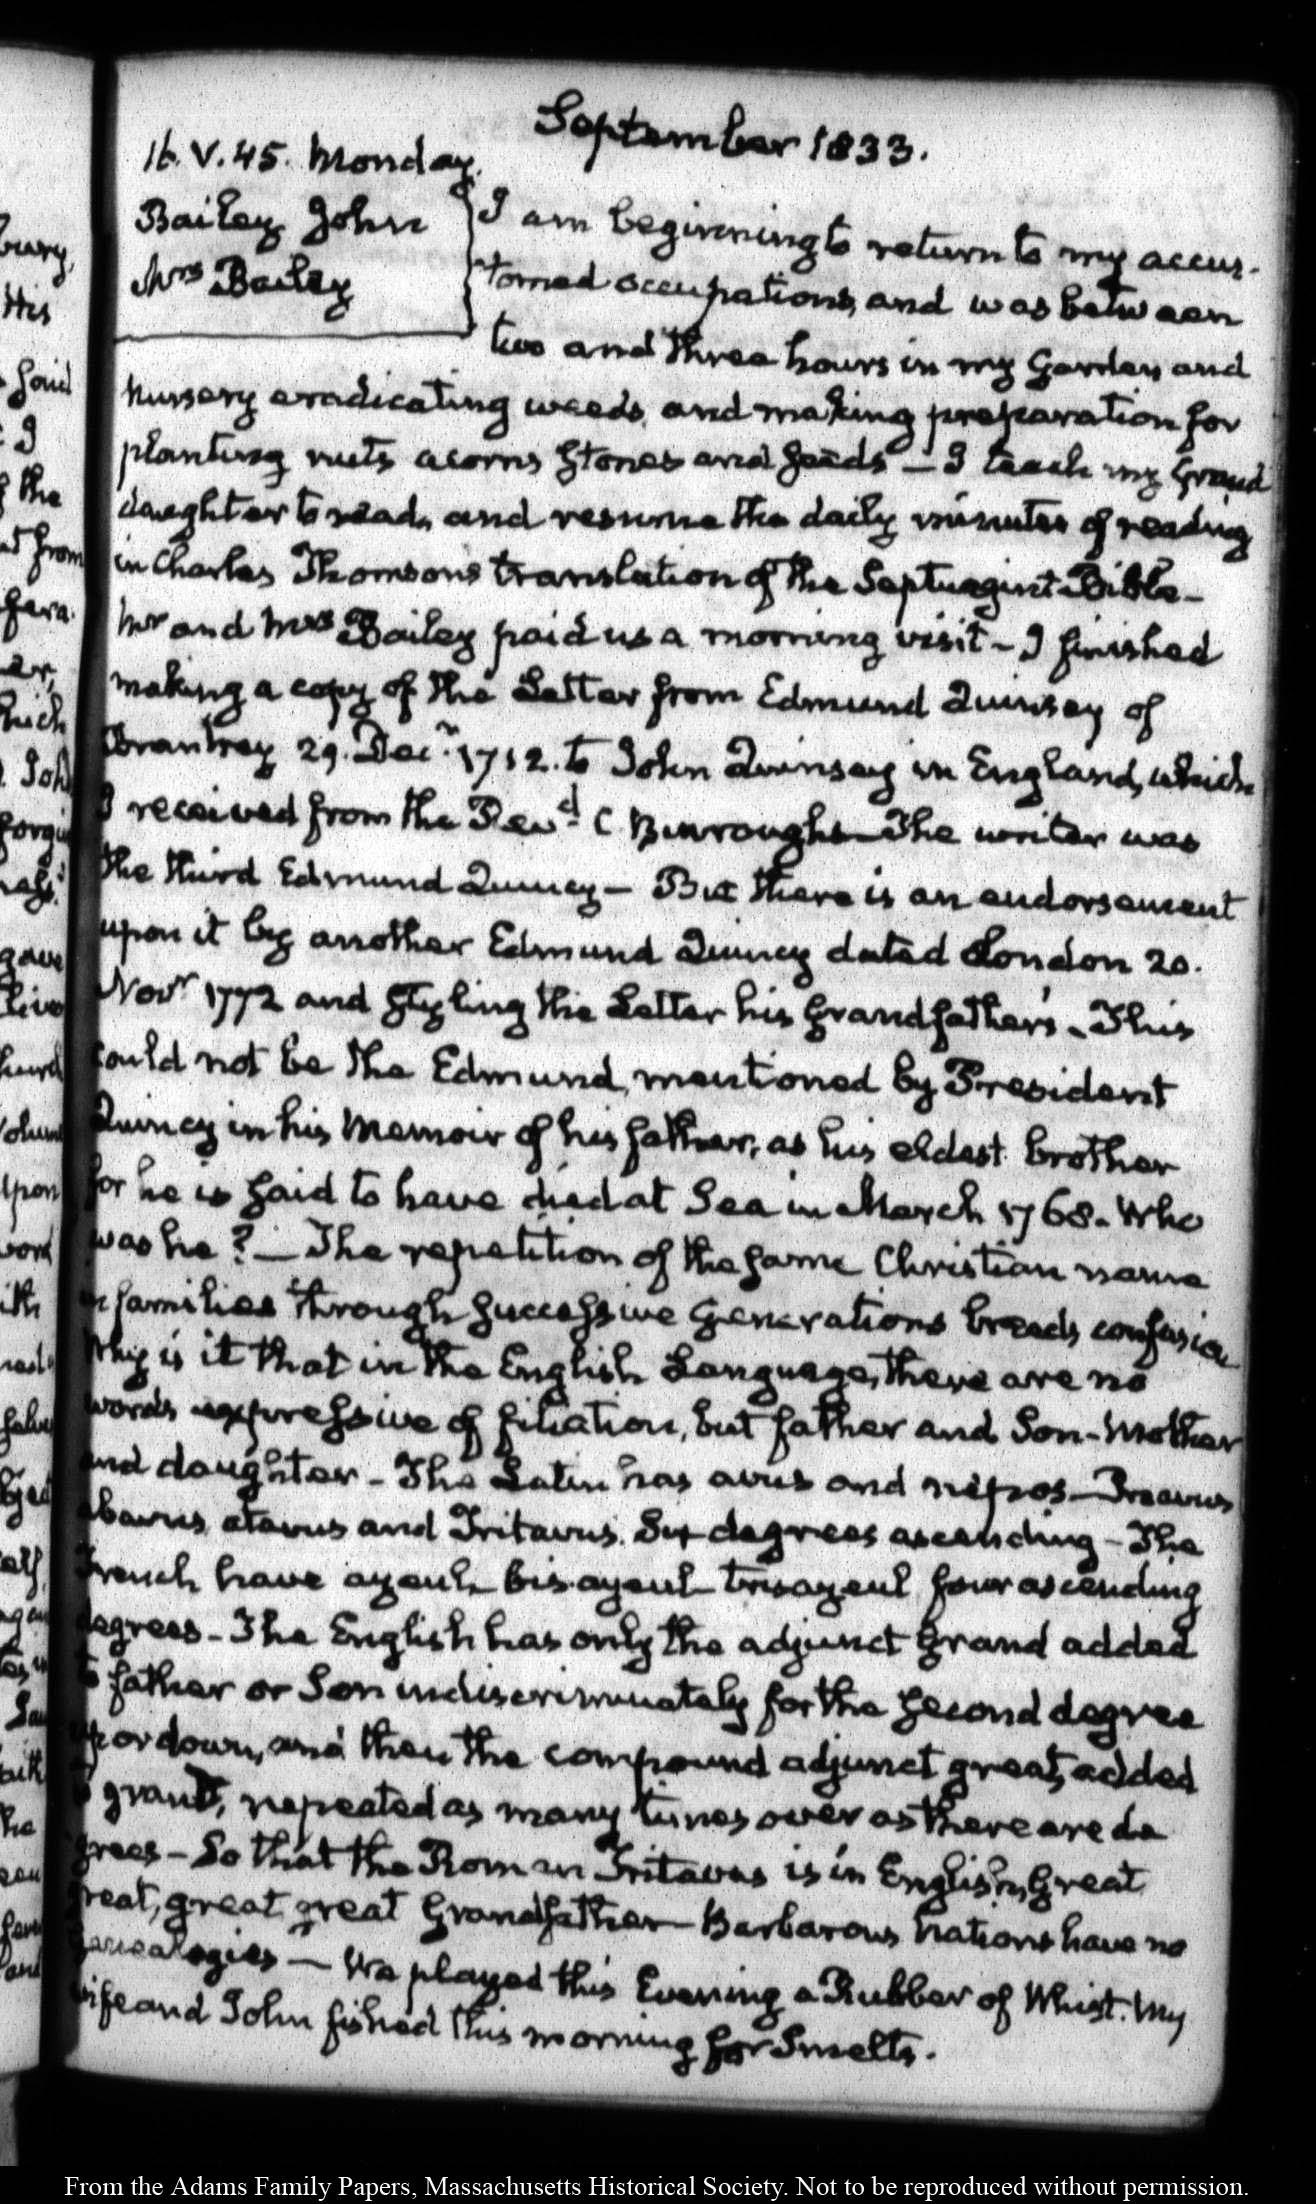 bury,
His
said
I
the
at from
fera
er,
hich
Joh
forgi
rass
gave
live
hurch
Volum
Upon
work
ith
half
Sa
the
September 1833.
16. V. 45. Monday.
Bailey John
Mrs Bailey
I am beginning to return to my accus-
tomed occupations, and was between
two and three hours in my Garden and
Nursery eradicating weeds, and making preparation for
planting nuts acorns stones and seeds — I teach my Grand
daughter to read, and resume the daily minutes of reading
in Charles Thomson's translation of the Septuagint Bible—
Mr and Mrs Bailey paid us a morning visit — I finished
making a copy of the Letter from Edmund Quinsey of
Brantrey 29. Decr. 1712. to John Quinsey in England, which
I received from the Revd. C Burroughs—The writer was
the third Edmund Quincy — But there is an endorsement
upon it by another Edmund Quincy dated London 20.
Novr. 1772 and styling the Letter his Grandfather's. This
could not be the Edmund, mentioned by President
Quincy in his Memoir of his father, as his eldest brother
for he is said to have died at Sea in March 1768. Who
was he? — The repetition of the same Christian name
in families through successive Generations breeds confusion
Why is it that in the English Language, there are no
words expressive of filiation, but father and Son-Mother
and daughter — The Latin has avus and nepos—Proavus
abavus, atavus and Tritavus. Six degrees ascending — The
French have ayeul, bis-ayeul trisayeul four ascending
degrees — The English has only the adjunct Grand added
to father or Son indiscriminately for the second degree
up or down, and then the compound adjunct great, added
to grand, repeated as many times over as there are de
grees — So that the Roman Tritavus is in English, Great
great, great great Grandfather — Barbarous Nations have no
Genealogies — We played this Evening a Rubber of Whist. My
wife and John fished this morning for Smelts.
From the Adams Family Papers, Massachusetts Historical Society. Not to be reproduced without permission.